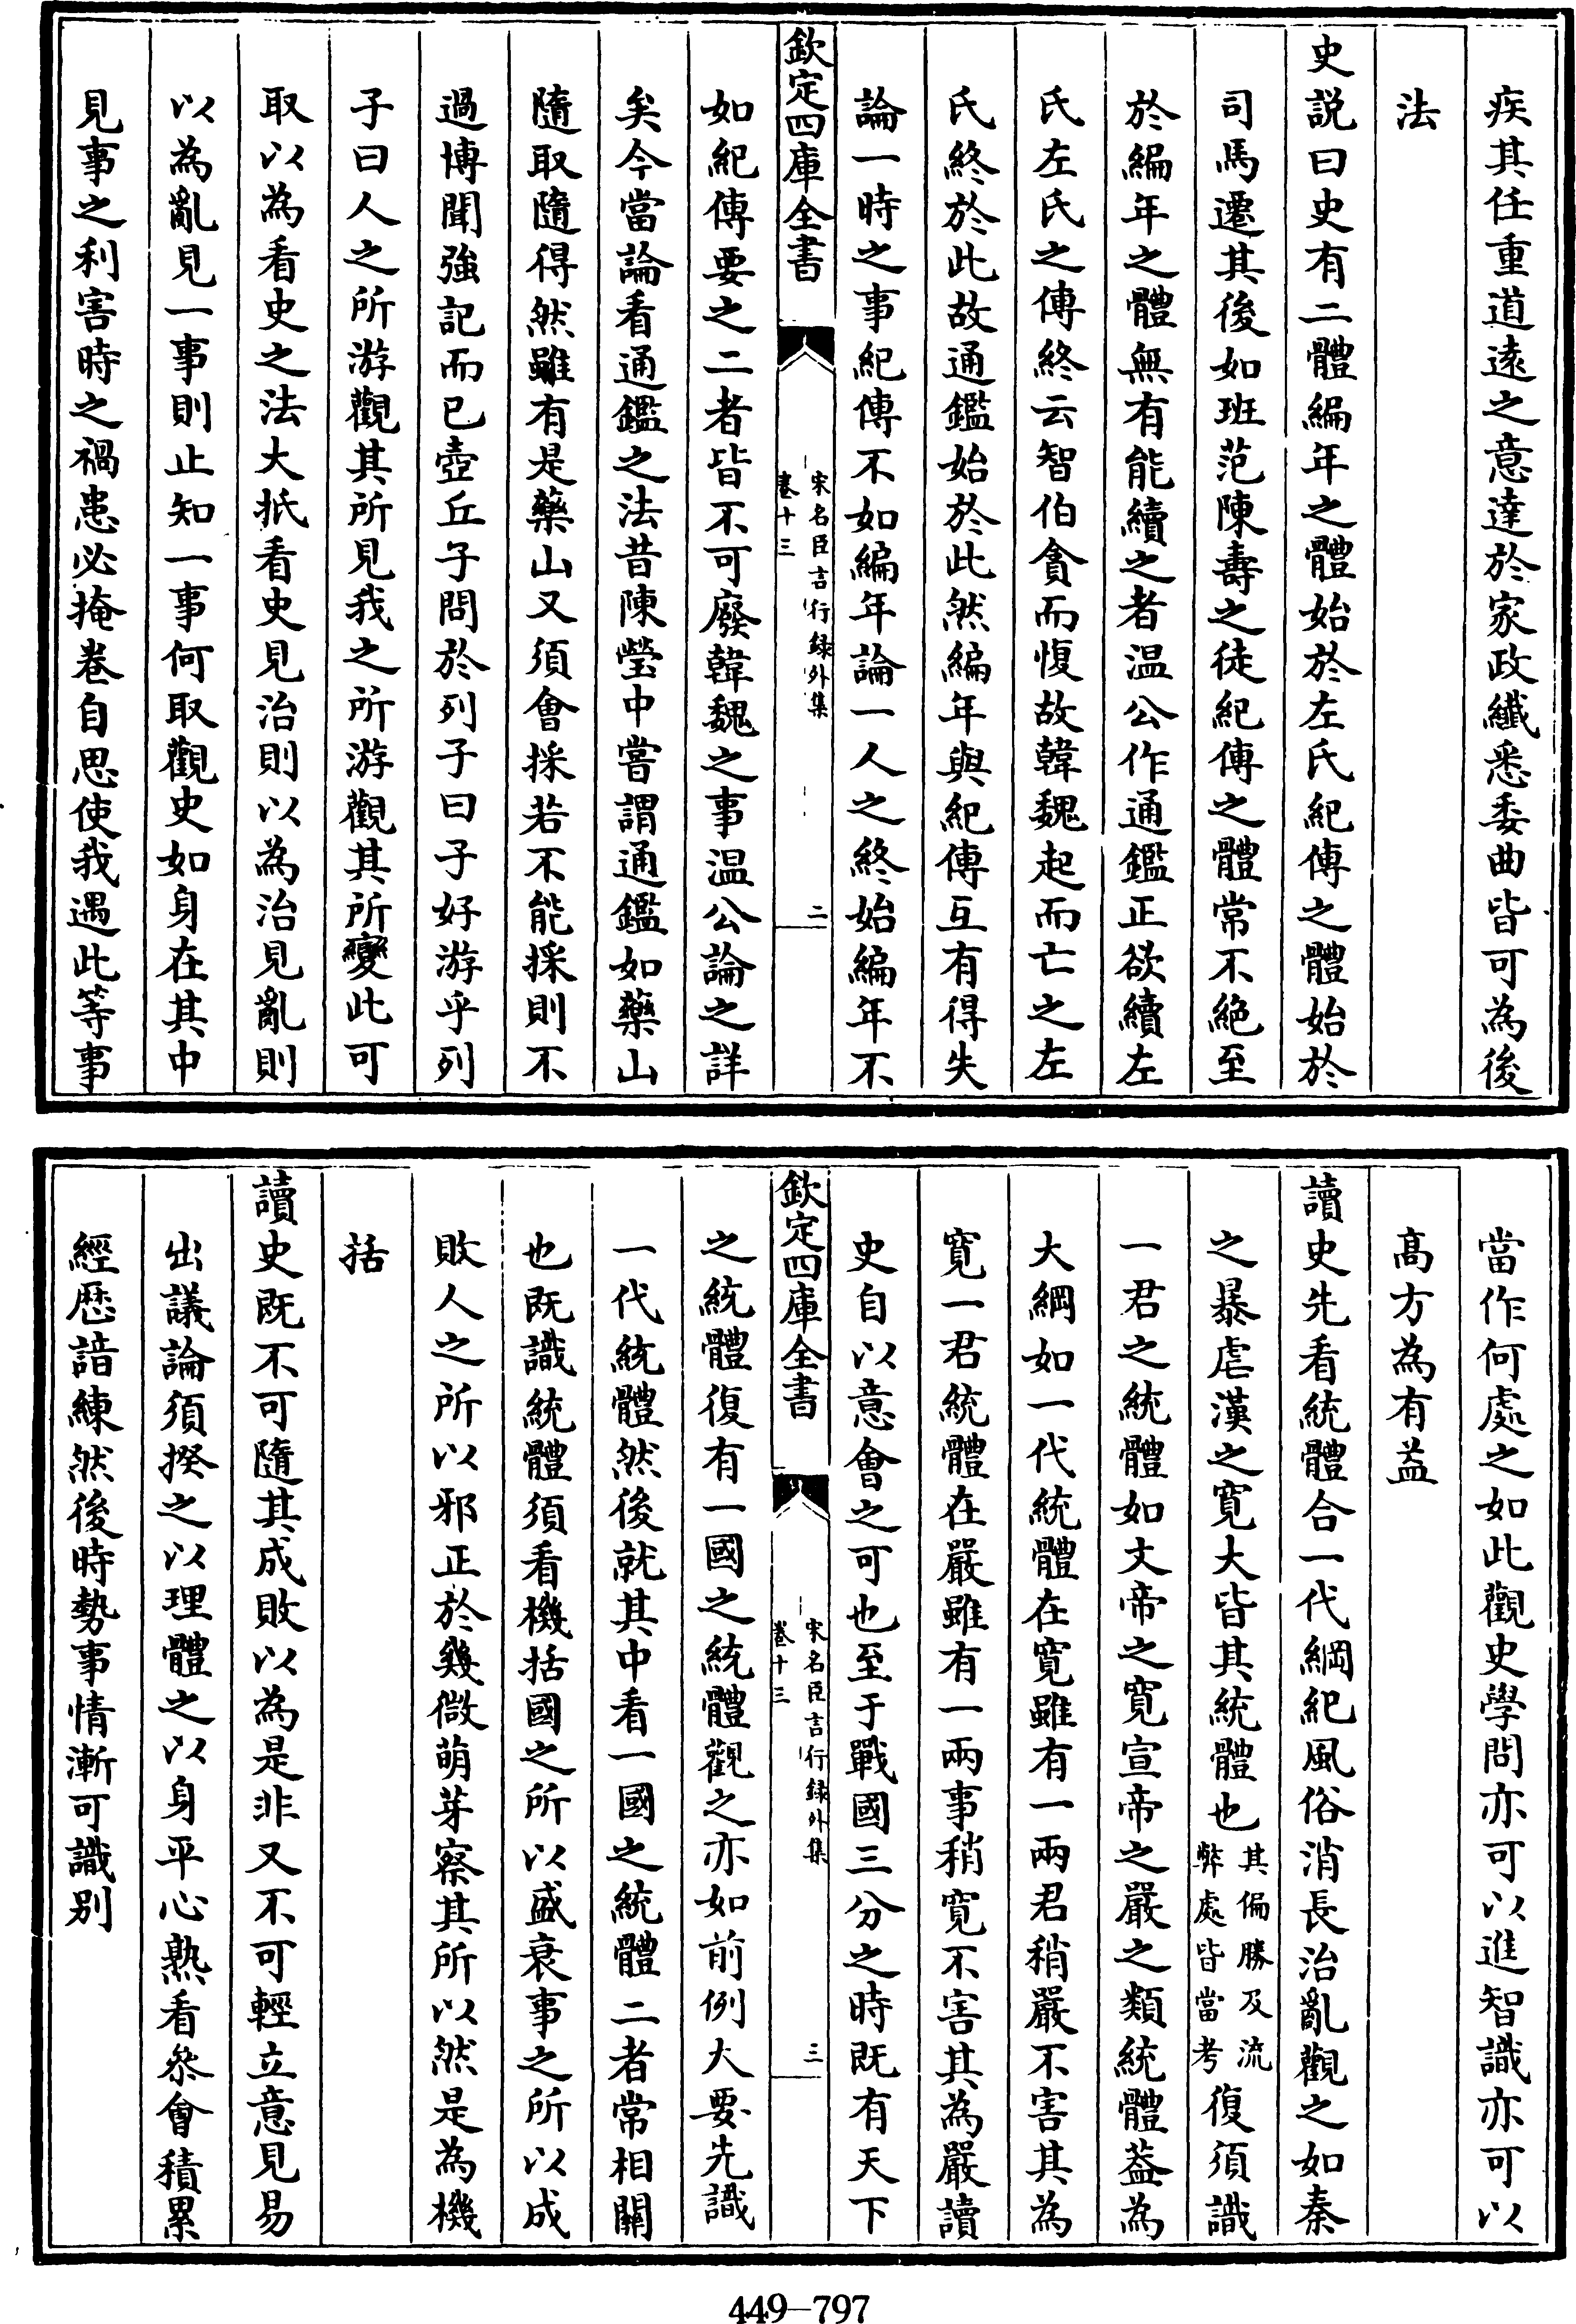 疾其任重道逺之意達於家政纖悉委曲皆可為後
法
史説曰史有二體編年之體始於左氏紀傳之體始於
司馬遷其後如班范陳壽之徒紀傳之體常不絶至
於編年之體無有能續之者温公作通鑑正欲續左
氏左氏之傳終云智伯貪而愎故韓魏起而亡之左
氏終於此故通鑑始於此然編年與紀傳互有得失
論一時之事紀傳不如編年論一人之終始編年不
欽定四庫全書
宋名臣言行録外集
卷十三
二
如紀傳要之二者皆不可廢韓魏之事温公論之詳
矣今當論看通鑑之法昔陳瑩中嘗謂通鑑如藥山
隨取隨得然雖有是藥山又須會採若不能採則不
過博聞強記而已壺丘子問於列子曰子好游乎列
子曰人之所游觀其所見我之所游觀其所變此可
取以為看史之法大抵看史見治則以為治見亂則
以為亂見一事則止知一事何取觀史如身在其中
見事之利害時之禍患必掩卷自思使我遇此等事
當作何處之如此觀史學問亦可以進智識亦可以
髙方為有益
讀史先看統體合一代綱紀風俗消長治亂觀之如秦
之暴虐漢之寛大皆其統體也其偏勝及流弊處皆當考復須識
一君之統體如文帝之寛宣帝之嚴之類統體葢為
大綱如一代統體在寛雖有一兩君稍嚴不害其為
寛一君統體在嚴雖有一兩事稍寛不害其為嚴讀
史自以意會之可也至于戰國三分之時既有天下
欽定四庫全書
宋名臣言行録外集
卷十三
三
之統體復有一國之統體觀之亦如前例大要先識
一代統體然後就其中看一國之統體二者常相關
也既識統體須看機括國之所以盛衰事之所以成
敗人之所以邪正於幾微萌芽察其所以然是為機
括
讀史既不可隨其成敗以為是非又不可輕立意見易
出議論須揆之以理體之以身平心熟看叅會積累
經歴諳練然後時勢事情漸可識别
449—797